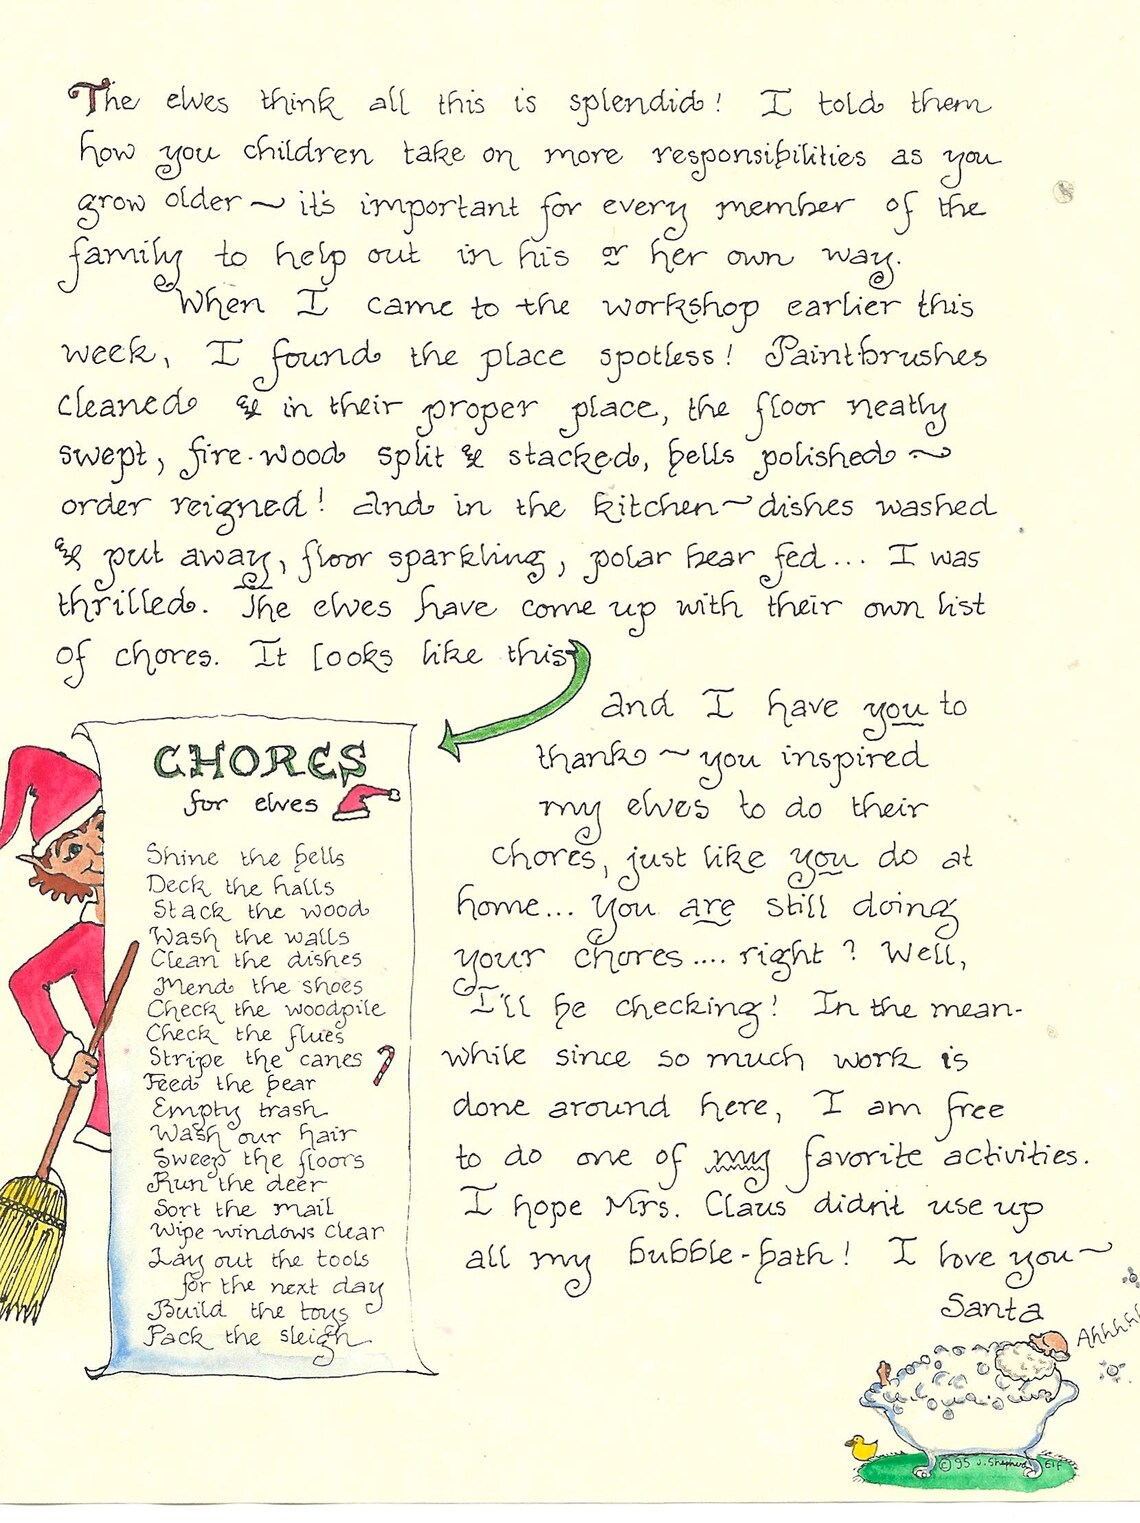 The elves think all this is splendid! I told them
how you children take on more responsibilities as you
grow older ~ it's important for every member of the
family to help out in his or her own way.
When I came to the workshop earlier this
week, I found the place spotless! Paintbrushes
cleaned & in their proper place, the floor neatly
swept, fire-wood split & stacked, bells polished ~
order reigned! And in the kitchen ~ dishes washed
& put away, floor sparkling, polar bear fed... I was
thrilled. The elves have come up with their own list
of chores. It looks like this
CHORES
for elves
Shine the bells
Deck the halls
Stack the wood
Wash the walls
Clean the dishes
Mend the shoes
Check the woodpile
Check the flues
Stripe the canes
Feed the bear
Empty trash
Wash our hair
Sweep the floors
Run the deer
Sort the mail
Wipe windows clear
Lay out the tools
for the next day
Build the toys
Pack the sleigh
and I have you to
thank ~ you inspired
my elves to do their
chores, just like you do at
home... You are still doing
your chores.... right? Well,
I'll be checking! In the mean-
while since so much work is
done around here, I am free
to do one of my favorite activities.
I hope Mrs. Claus didn't use up
all my bubble-bath! I love you ~
Santa
Ahhhhh
© 95 J. Shepherd Elf